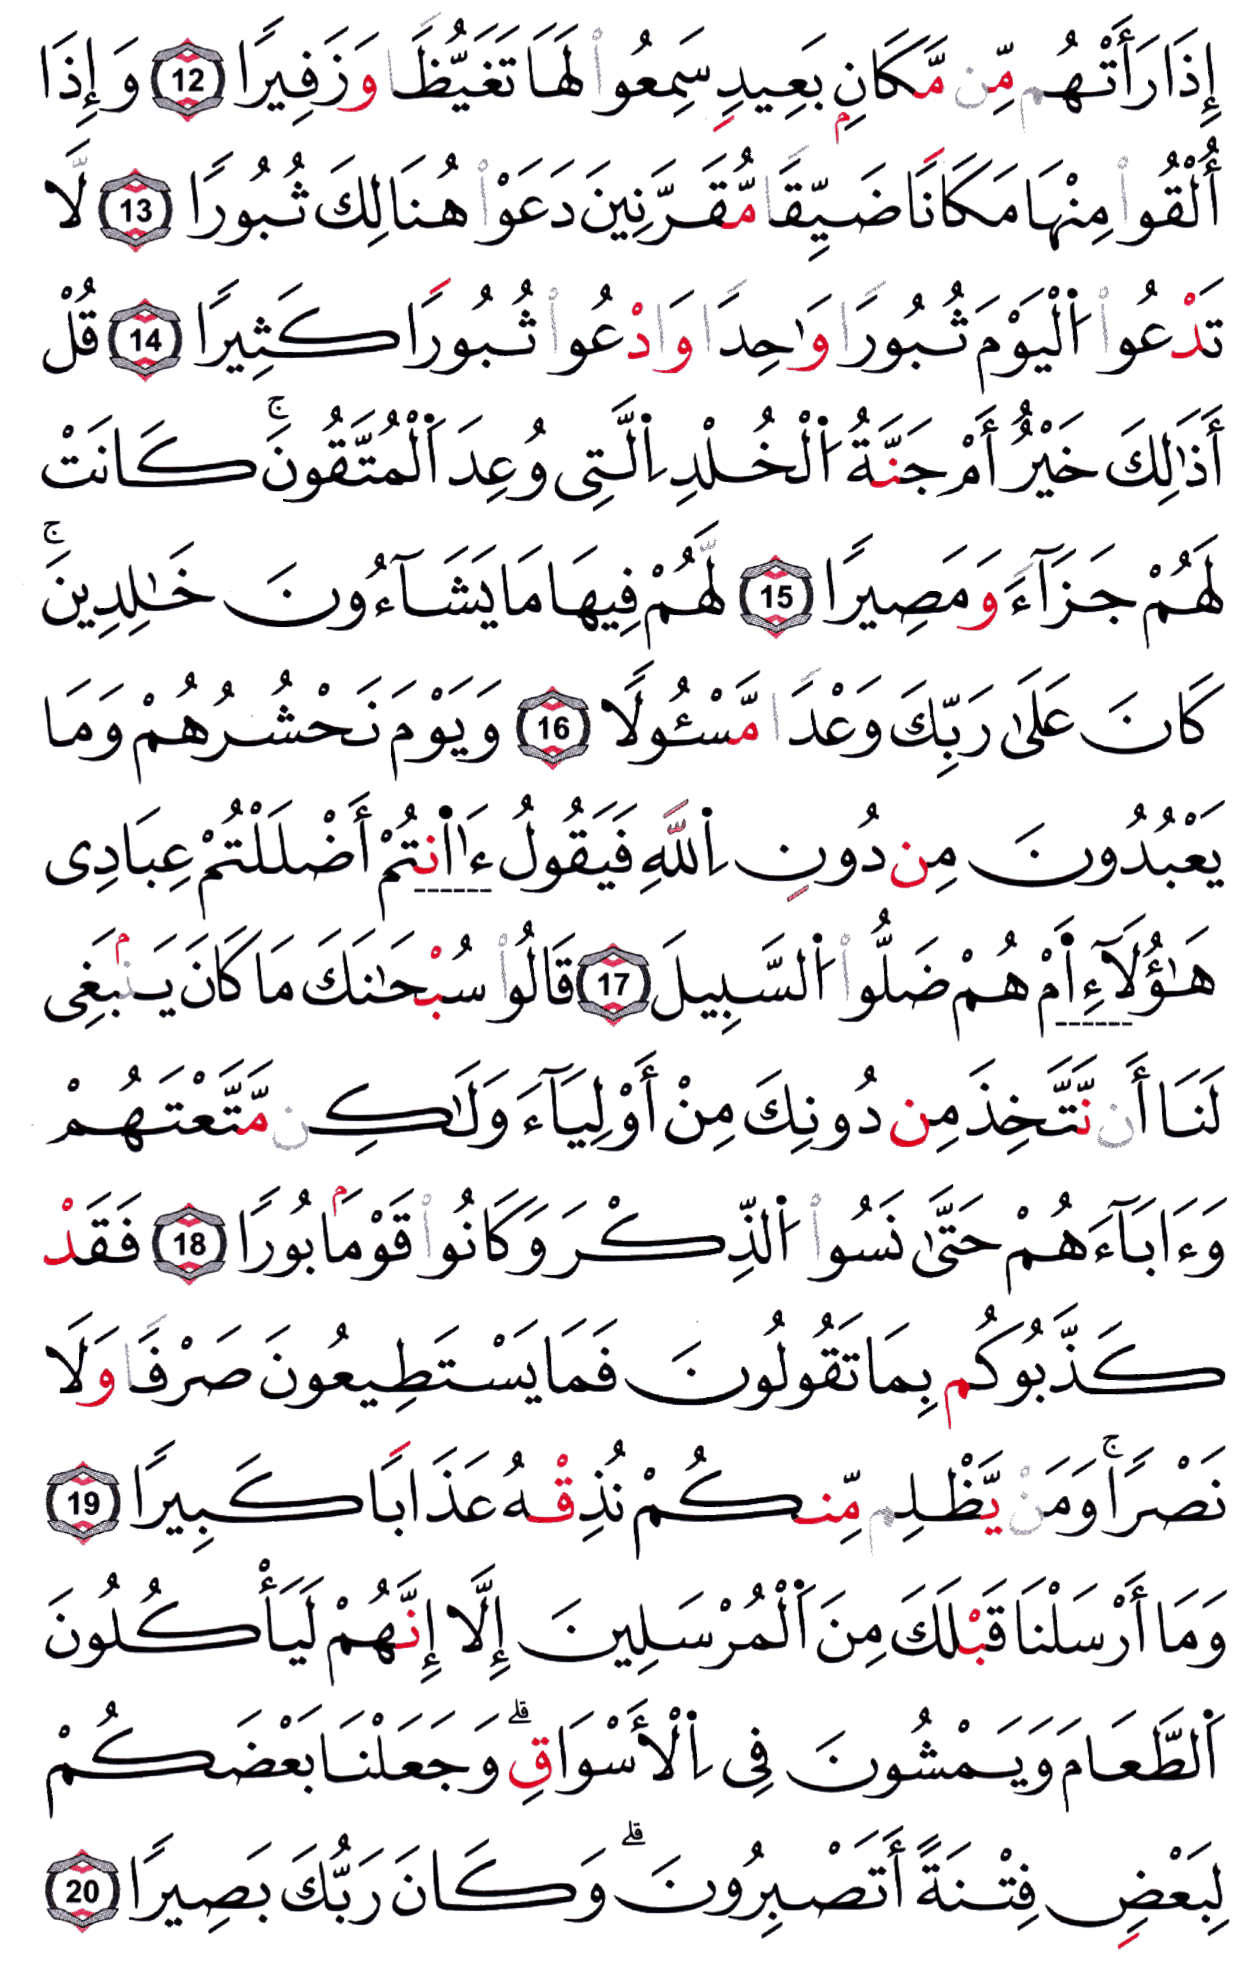 إِذَا رَأَتْهُم مِّن مَّكَانِۭ بَعِيدٍ سَمِعُوا۟ لَهَا تَغَيُّظًا وَزَفِيرًا 12 وَإِذَا
أُلْقُوا۟ مِنْهَا مَكَانًا ضَيِّقًا مُّقَرَّنِينَ دَعَوْا۟ هُنَالِكَ ثُبُورًا 13 لَّا
تَدْعُوا۟ اَ۬لْيَوْمَ ثُبُورًا وَٰحِدًا وَادْعُوا۟ ثُبُورًا كَثِيرًا 14 قُلْ
أَذَٰلِكَ خَيْرٌ أَمْ جَنَّةُ اُ۬لْخُلْدِ اِ۬لَّتِى وُعِدَ اَ۬لْمُتَّقُونَۚ كَانَتْ
لَهُمْ جَزَآءً وَمَصِيرًا 15 لَّهُمْ فِيهَا مَا يَشَآءُونَ خَٰلِدِينَۚ
كَانَ عَلَىٰ رَبِّكَ وَعْدًا مَّسْئُولًا 16 وَيَوْمَ نَحْشُرُهُمْ وَمَا
يَعْبُدُونَ مِن دُونِ اِ۬للَّهِ فَيَقُولُ ءَا۬نتُمْ أَضْلَلْتُمْ عِبَادِى
هَٰٓؤُلَآءِ ا۬مْ هُمْ ضَلُّوا۟ اُ۬لسَّبِيلَ 17 قَالُوا۟ سُبْحَٰنَكَ مَا كَانَ يَنۢبَغِى
لَنَا أَن نَّتَّخِذَ مِن دُونِكَ مِنْ أَوْلِيَآءَ وَلَٰكِن مَّتَّعْتَهُمْ
وَءَابَآءَهُمْ حَتَّىٰ نَسُوا۟ اُ۬لذِّكْرَ وَكَانُوا۟ قَوْمَۢا بُورًا 18 فَقَدْ
كَذَّبُوكُم بِمَا تَقُولُونَ فَمَا يَسْتَطِيعُونَ صَرْفًا وَلَا
نَصْرًاۚ وَمَنْ يَّظْلِم مِّنكُمْ نُذِقْهُ عَذَابًا كَبِيرًا 19
وَمَا أَرْسَلْنَا قَبْلَكَ مِنَ اَ۬لْمُرْسَلِينَ إِلَّا إِنَّهُمْ لَيَأْكُلُونَ
اَ۬لطَّعَامَ وَيَمْشُونَ فِى اِ۬لْأَسْوَاقِۗ وَجَعَلْنَا بَعْضَكُمْ
لِبَعْضٍ فِتْنَةً أَتَصْبِرُونَۗ وَكَانَ رَبُّكَ بَصِيرًا 20